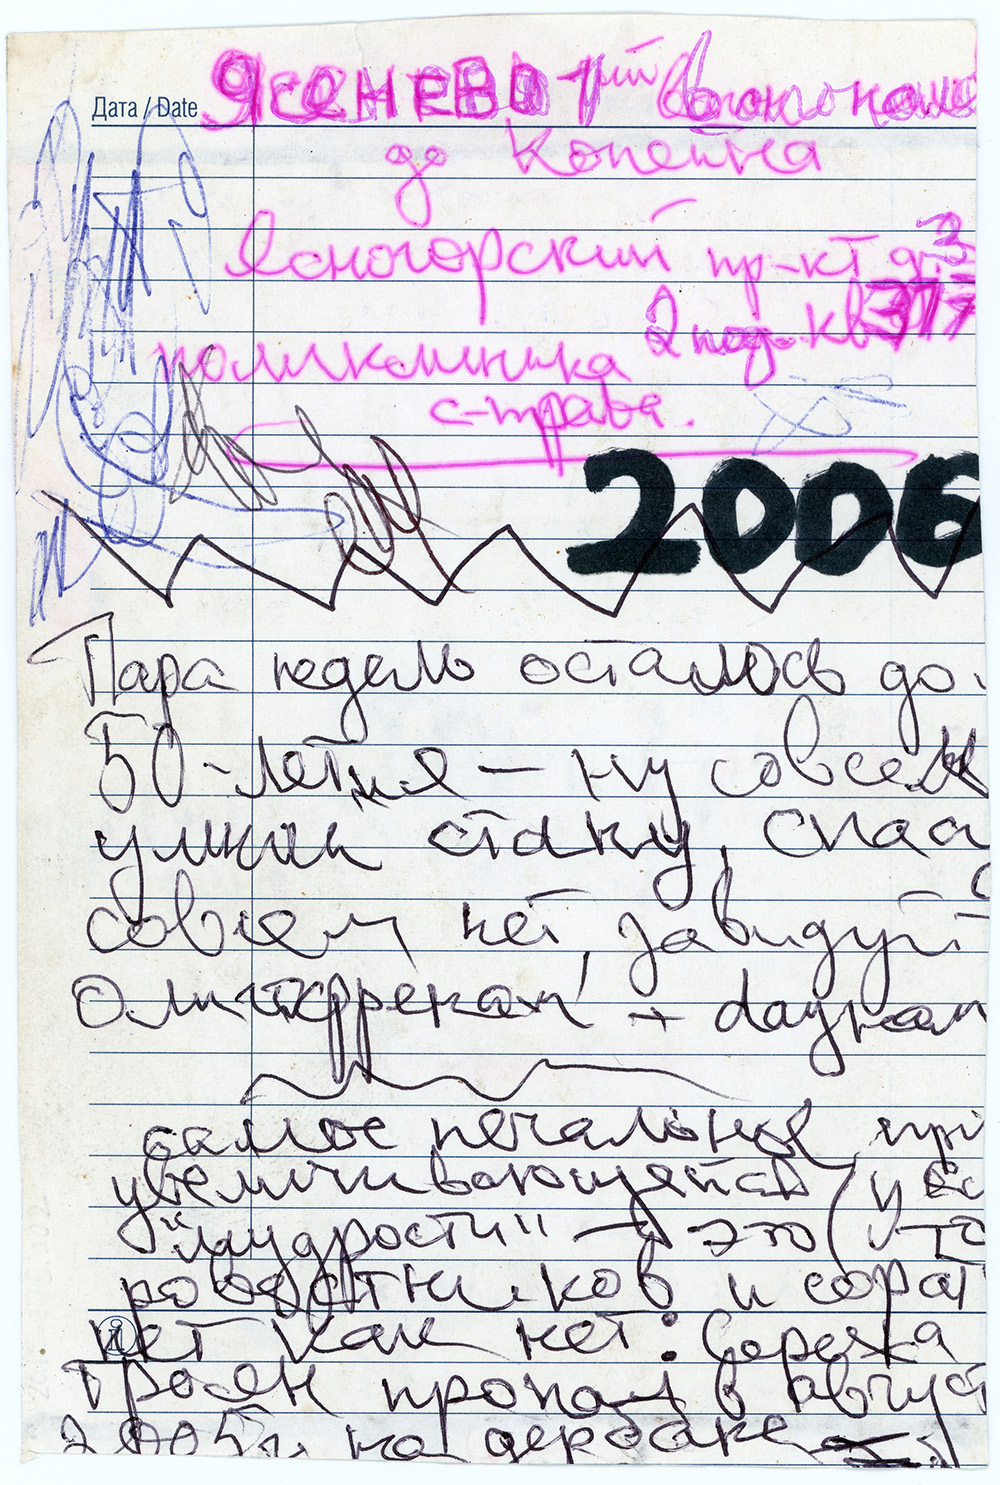 Дата / Date
ЯСЕНЕВО 1ый
до Копейка
Ясногорский пр-кт д. 3
2 под. кв 377
поликлиника
с-права.
2006
Пара недель осталось до
50-летия — ну совсем
умным стану, спас
совсем нет, завидуй
Олигофренам + даунам
самое печальное при
увеличивающейся (у вс
"мудрости" — это (что
ровестников и сорат
нет как нет: Сережа
Троян пропал в август
2005 г. на дербане